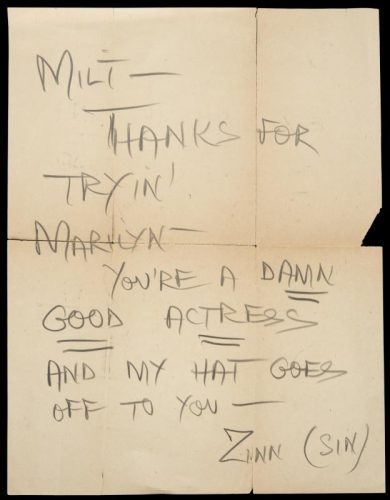 MILT —
THANKS FOR
TRYIN'
MARILYN —
YOU'RE A DAMN
GOOD ACTRESS
AND MY HAT GOES
OFF TO YOU —
ZINN (SIN)